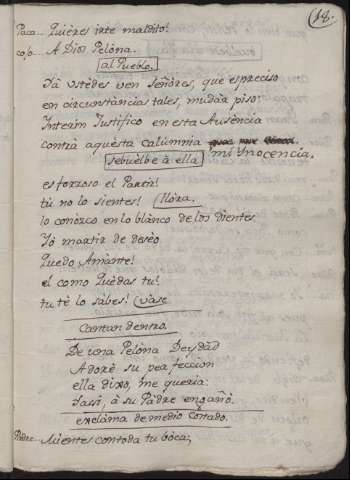 18.
Paca.. Quiéres irte maldito!
cojo.. A Dios Pelòna.
al Pueblo.
Yà ustèdes ven Señòres, que es preciso
en circunstàncias tales, mudàr piso
Interin Justifico en esta Ausència
contra aquesta calùmnia mi Ynocencia.
sebuèlbe à ella
es forzoso el Partir!
tù no lo sientes! llòra.
lo conòzco en lo blànco de los dientes.
Yò martir de desèo
Quedo Amànte!
el como Quèdas tu!
tu tè lo sàbes! vàse
Cantan dentro.
De una Pelòna Deydàd
Adorè su perfeccion
ella dixo, me queria:
Y assi, à su Pàdre engañò.
exclàma de medio Cortado.
Padre.. Mientes con toda tu bòca;